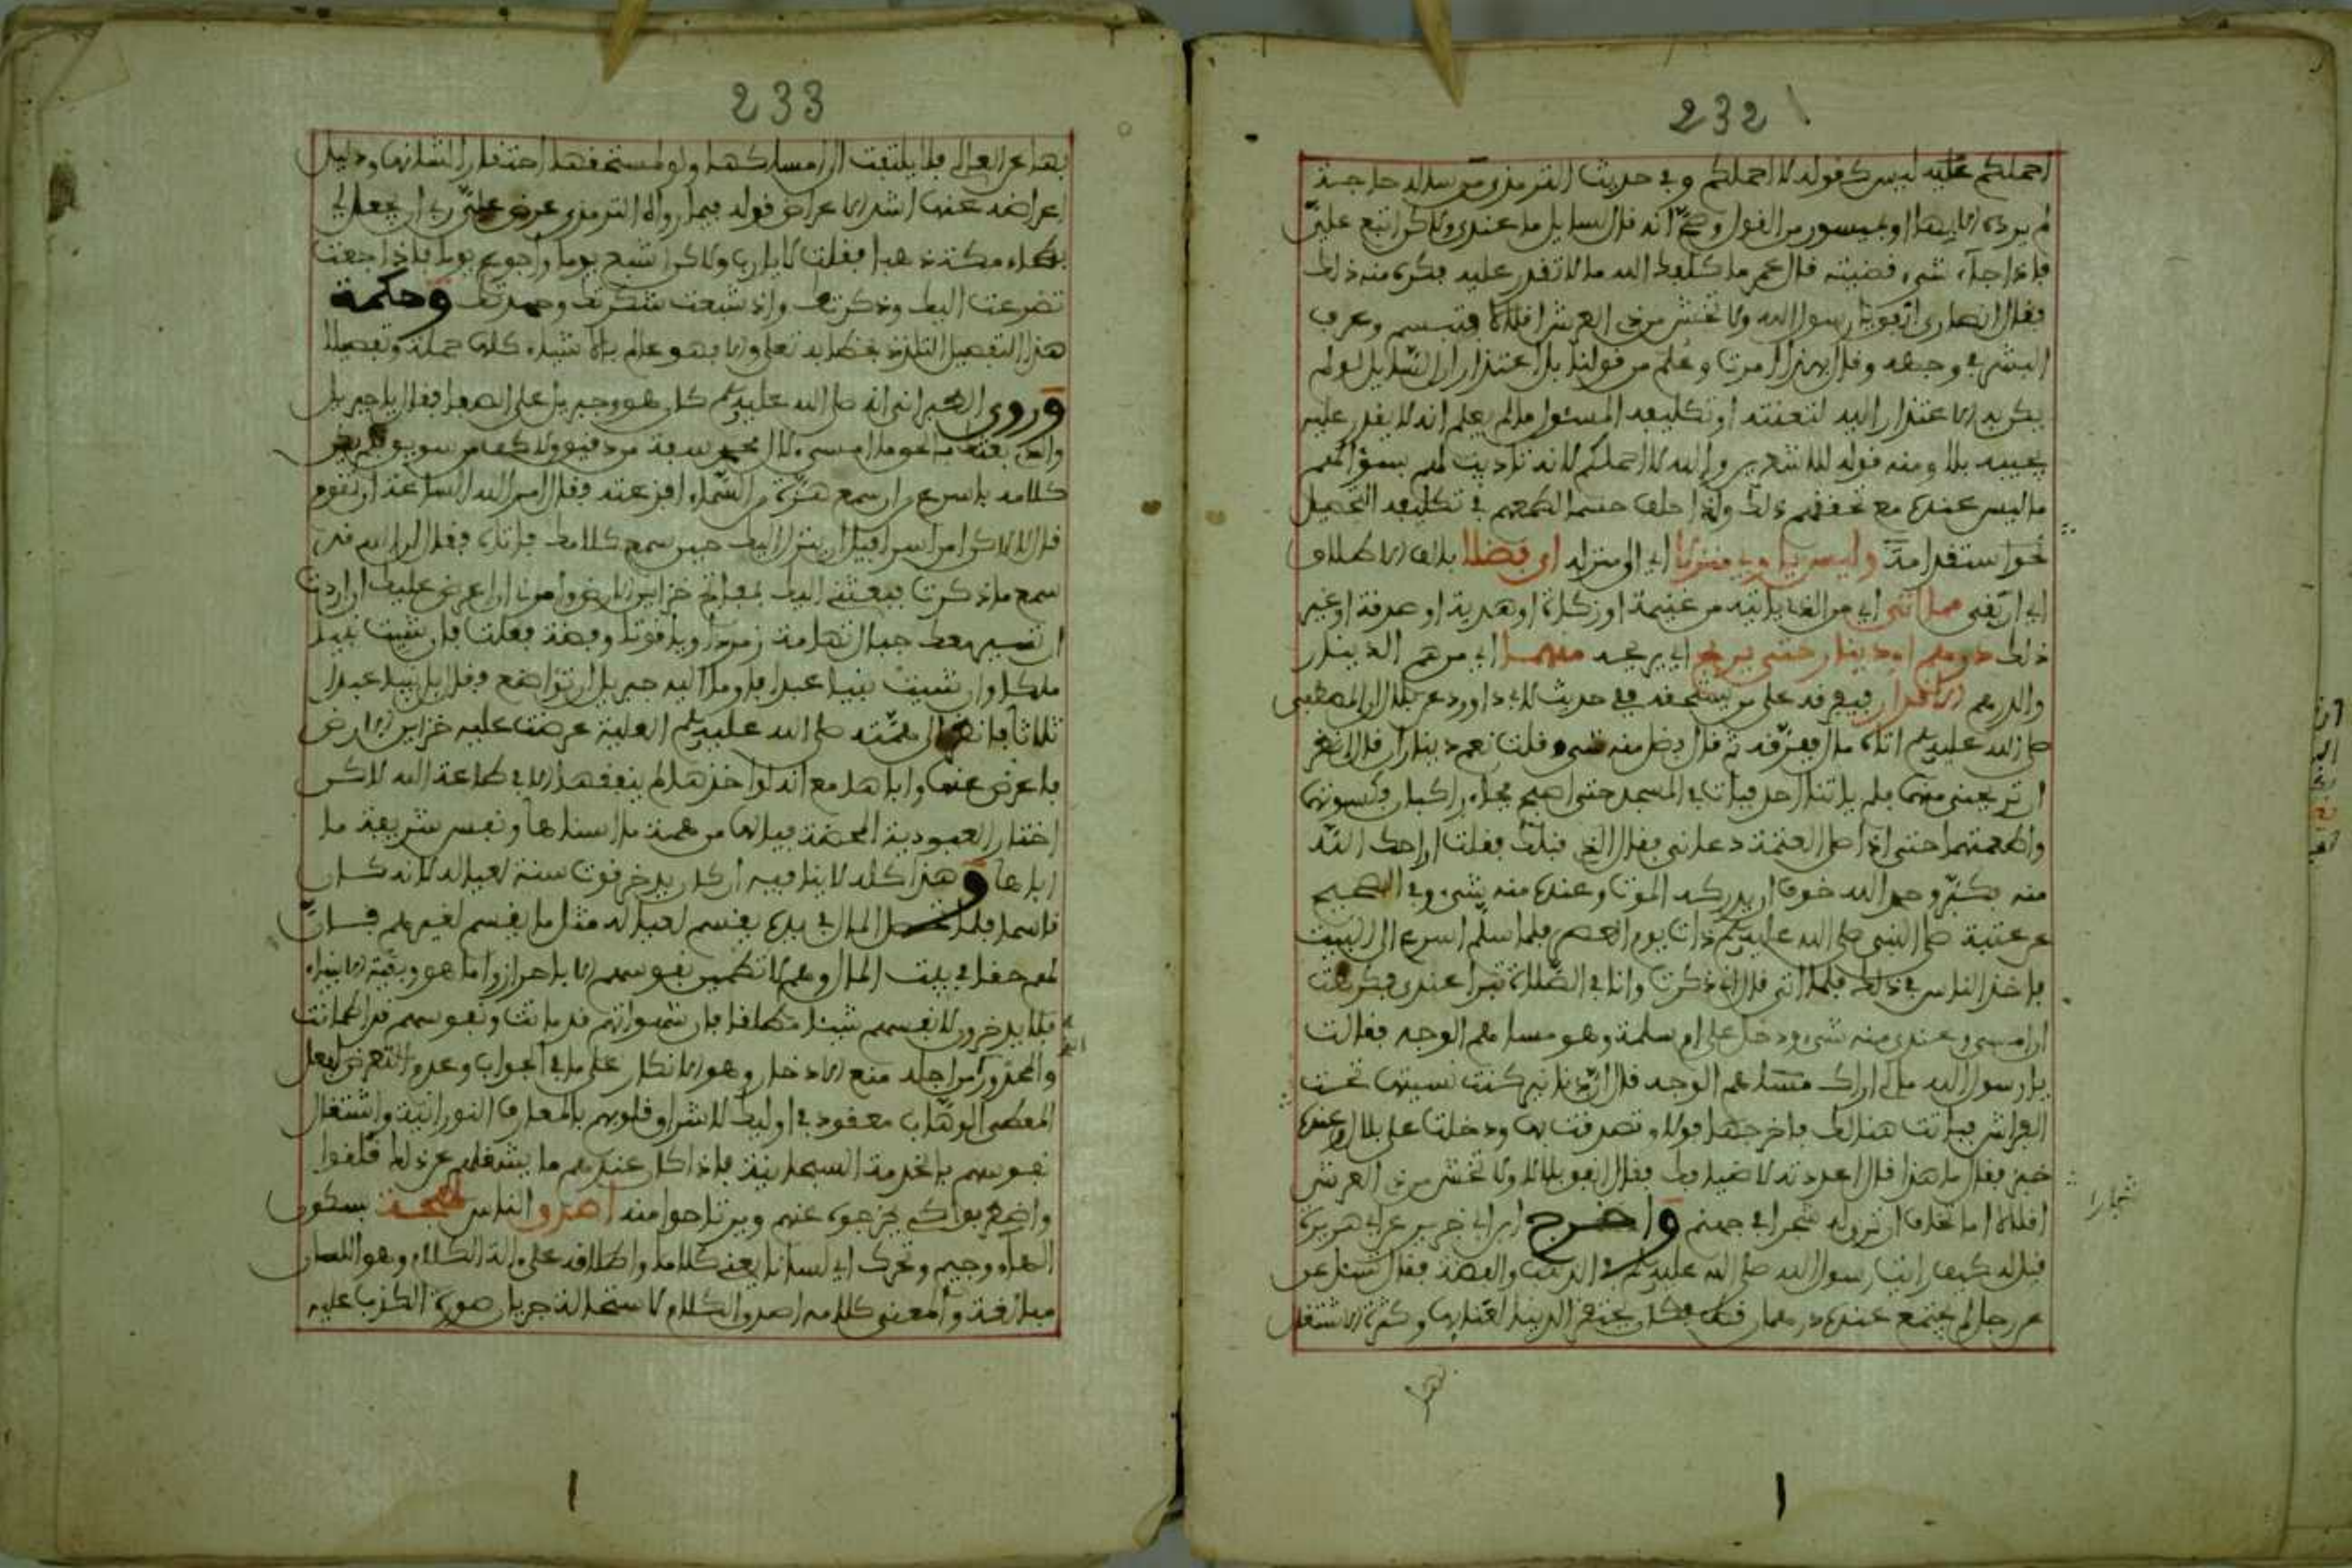 232
احملكم عليه ليس كقوله لا احملكم وفي حديث الترمذي من سأله حاجة
لم يرده الا بها او بميسور من القول وصح انه قال لسايل ما عندي ولاكن اتبع علي
فاذا جاء شيء قضيته قال عمر ما كلفك الله ما لا تقدر عليه فكره منه ذلك
فقال انصاري انفق يا رسول الله ولا تخش من ذي العرش اقلالا فتبسم وعرف
البشر في وجهه وقال بهذا امرت وعلم من قولنا بل اعتذارا ان السايل لو لم
يكن يد الاعتذار اليه لتعنته او تكليفه المسئول ما لم يعلم انه لا يقدر عليه
يجيبه بلا ومنه قوله للاشعريين والله لا احملكم لانه تاديب لهم بسؤالهم
ما ليس عنده مع تحققهم ذلك ولذا حلف حسما لطمعهم في تكليفه التحصيل
نحو استقدامة ولا يس ياوي منزلا اي الى منزله اي فضلا بلاف الاطلاق
اي ان بقي مما اتى اي من الذي ياتيه من غنيمة او زكاة او هدية او صدقة او غير
ذلك درهم او دينار حتى يريح اي يريحه منهما اي من هم الدينار
والدرهم الاقدار فيفرقه على من يستحقه ففي حديث لابي داوود عن بلال ان المصطفى
صلى الله عليه وسلم اتاه مال ففرقه ثم قال افضل منه شيء قلت نعم ديناران قال انظر
ان تريحني منها فلم ياتنا احد فبات في المسجد حتى اصبح فجاء راكبان فكسوتهما
واطعمتهما حتى اذا صلى العتمة دعاني فقال الذي قبلك فقلت اراحك الله
منه فكبر وحمد الله خوفا ان يدركه الموت وعنده منه شيء وفي الصحيح
عن عتبة صلى النبي صلى الله عليه وسلم ذات يوم العصر فلما سلم اسرع الى البيت
فاخذ الناس في ذلك فلما اتى قال اني ذكرت وانا في الصلاة تبرا عندي فكرهت
ان امسي وعندي منه شيء ودخل على ام سلمة وهو مساهم الوجه فقالت
يا رسول الله ما لي اراك مساهم الوجه قال ان الدنانير كنت نسيتها تحت
الفراش فباتت هنالك فاخرجها فولا وتصدقت بها ودخلت على بلال وعنده
خبز فقال ما هذا قال اعددته لاضيافك فقال انفق بلالا ولا تخش من ذي العرش
اقلالا اما تخاف ان تروله بخارا في جهنم واخرج ابن ابي خريم عن ابي هريرة
قيل له كيف رايت رسول الله صلى الله عليه وسلم في الذهب والفضة فقال سئل عن
عن رجل لم يجتمع عنده درهمان قط فكان يحتقر الدنيا لفنايها وكثرة الاشتغال
بخارا
بها
233
بها عن الله فلا يلتفت الى امساكها ولو لمستحقها احتقارا لشانها ودليل
اعراضه عنها اشد الاعراض قوله فيما رواه الترمذي عرض علي ربي ان يجعل لي
بطحاء مكة ذهبا فقلت لا يا رب ولاكن اشبع يوما واجوع يوما فاذا جعت
تضرعت اليك وذكرتك واذا شبعت شكرتك وحمدتك وحكمة
هذا التفصيل التلذذ بخطابه تعلى والا فهو عالم بالاشياء كلها جملة وتفصيلا
وروى الطبراني انه صلى الله عليه وسلم كان هو وجبريل على الصفا فقال يا جبريل
والذي بعثك بالحق ما امسى لال محمد سفة من دقيق ولا كف من سويق فلم يكن
كلامه باسرع من ان سمع هزة من السماء افزعته فقال امر الله الساعة ان تقوم
قال لا ولاكن امر اسرافيل ان ينزل اليك حين سمع كلامك فاتاه فقال ان الله قد
سمع ما ذكرت فبعثني اليك بمفاتح خزاين الارض وامرني ان اعرض عليك ان اردت
ان اسير معك جبال تهامة زمردا وياقوتا وفضة فعلت فان شئت نبيا
ملكا وان شئت نبيا عبدا فاوما اليه جبريل ان تواضع فقال بل نبيا عبدا
ثلاثا فانظر الى همته صلى الله عليه وسلم العلية عرضت عليه خزاين الارض
فاعرض عنها واباها مع انه لو اخذها لم ينفقها الا في طاعة الله لاكن
اختار العبودية المحضة فيا لها من همة ما اسناها ونفس شريفة ما
ابهاها وهذا كله لا ينافيه ان كان يدخر قوت سنة لعياله لانه كان
قاسما فلما حصل المال في يده يقسم لعياله مثل ما يقسم لغيرهم فان
لهم حقا في بيت المال وهم لا تطمئن نفوسهم الا باحرازه واما هو وبقية الانبياء
فلا يدخرون لانفسهم شيئا مطلقا فان شهواتهم قد ماتت ونفوسهم قد اطمانت
والمحذور من اجله منع الادخار وهو الاتكال على ما في الجواب وعدم التعرض لفعل
المعطي الوهاب مفقود في اوليك لاشراق قلوبهم بالمعارف النورانية واشتغال
نفوسهم بالخدمة السبحانية فاذا كان عندهم ما يشغلهم عن ذلك قلقوا
واضطربوا كي يخرجوه عنهم ويرتاحوا منه اصدق الناس لهجة بسكون
الهاء وجيم وتحرك اي لسانا يعني كلاما واطلاقه على الة الكلام وهو اللسان
مبالغة والمعنى كلامه اصدق الكلام لاستحالة جريان صورة الكذب عليه